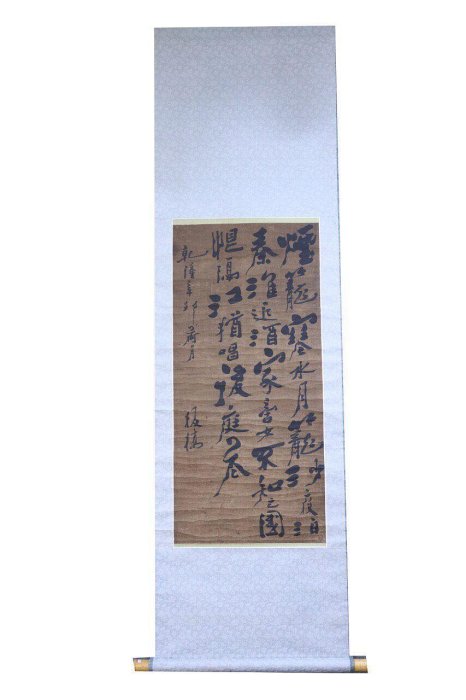 煙籠寒水月籠沙夜泊
秦淮近酒家商女不知亡國
恨隔江猶唱後庭花
乾隆辛卯月 板橋